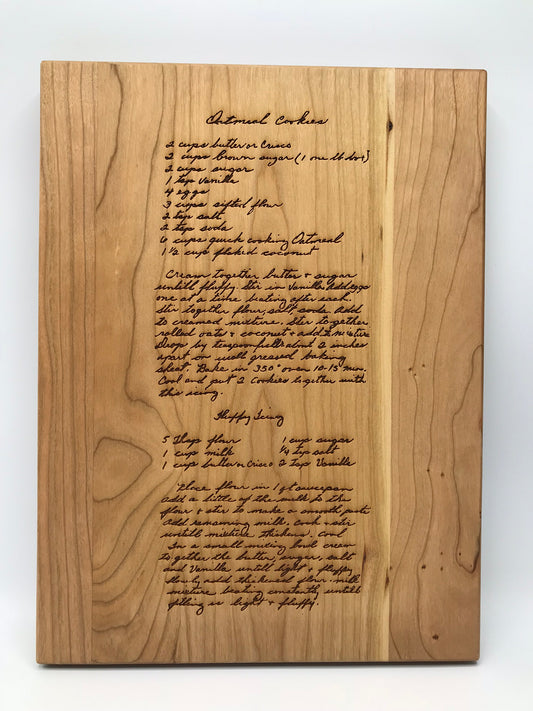 Oatmeal Cookies
2 cups butter or Crisco
2 cups brown sugar (1 one lb box)
2 cups sugar
1 tsp vanilla
4 eggs
3 cups sifted flour
2 tsp salt
2 tsp soda
6 cups quick cooking Oatmeal
1 1/2 cup flaked coconut
Cream together butter + sugar
untill fluffy. Stir in Vanilla. Add eggs
one at a time beating after each.
Stir together flour, salt, soda. Add
to creamed mixture. Stir together
rolled oats + coconut + add to mixture
Drop by teaspoonfulls about 2 inches
apart on well greased baking
sheet. Bake in 350° oven 10-15 min.
Cool and put 2 cookies together with
this icing.
Fluffy Icing
5 Tbsp flour 1 cup sugar
1 cup milk 1/4 tsp salt
1 cup butter or Crisco 2 tsp Vanilla
Place flour in saucepan
add a little of the milk to the
flour + stir to make a smooth paste
Add remaining milk. cook + stir
untill mixture thickens. Cool
In a small mixing bowl cream
together the butter, sugar, salt
and Vanilla untill light + fluffy
Slowly add thickened flour-milk
mixture beating constantly untill
filling is light + fluffy.